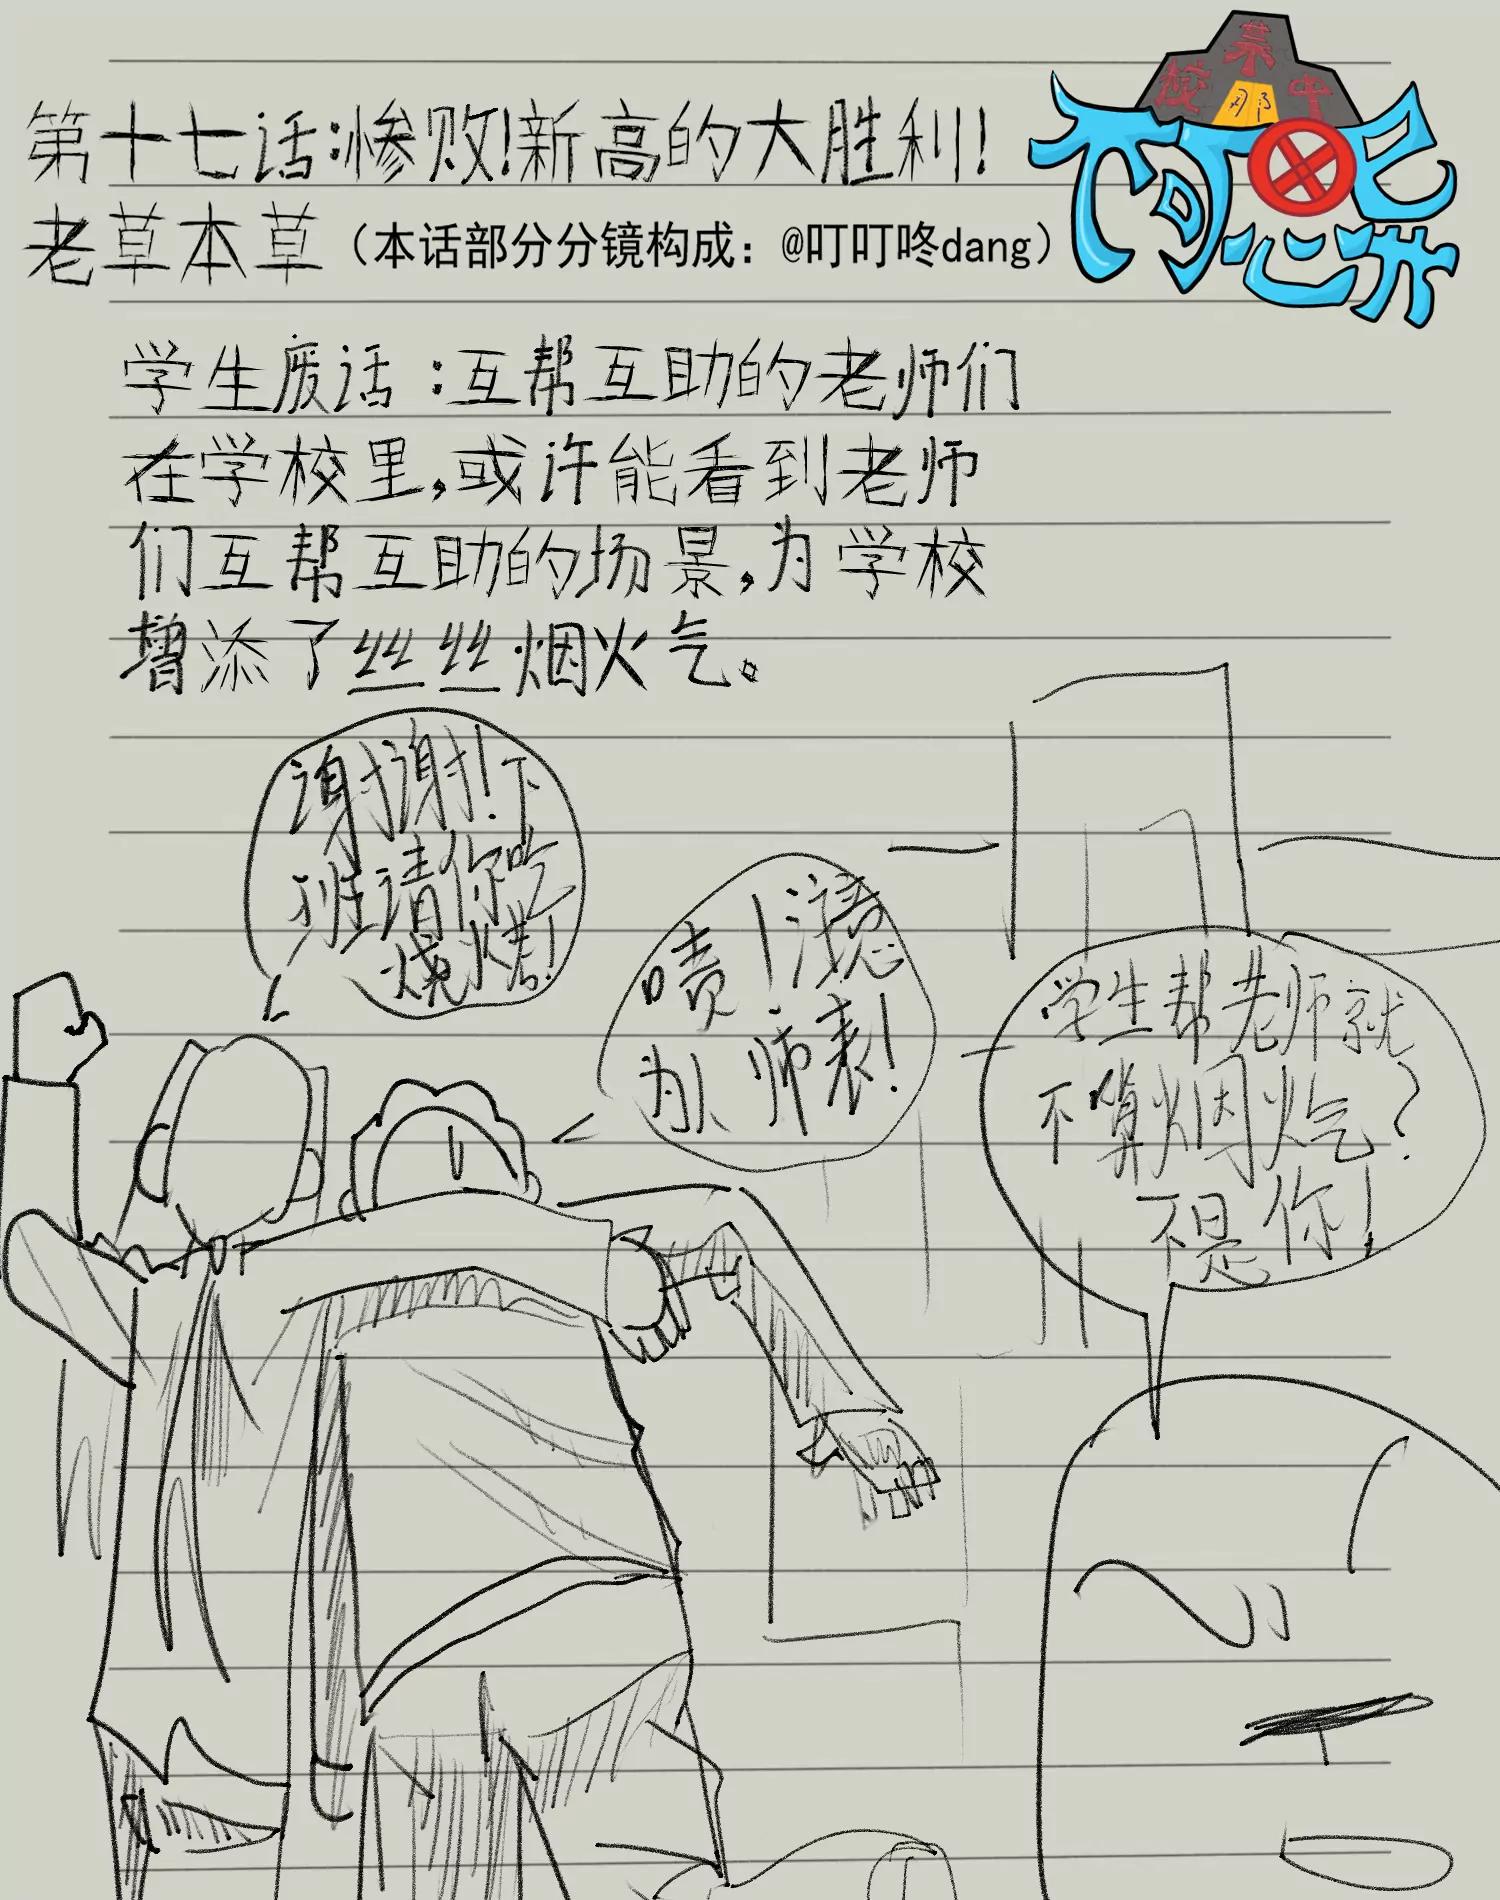 第十七话:惨败!新高的大胜利!
老草本草（本话部分分镜构成：@叮叮咚dang）
学生废话:互帮互助的老师们
在学校里,或许能看到老师
们互帮互助的场景,为学校
增添了丝丝烟火气。
谢谢!下
班请你吃
烧烤!
啧!注意
为人师表!
学生帮老师就
不算烟火气?
不是你!